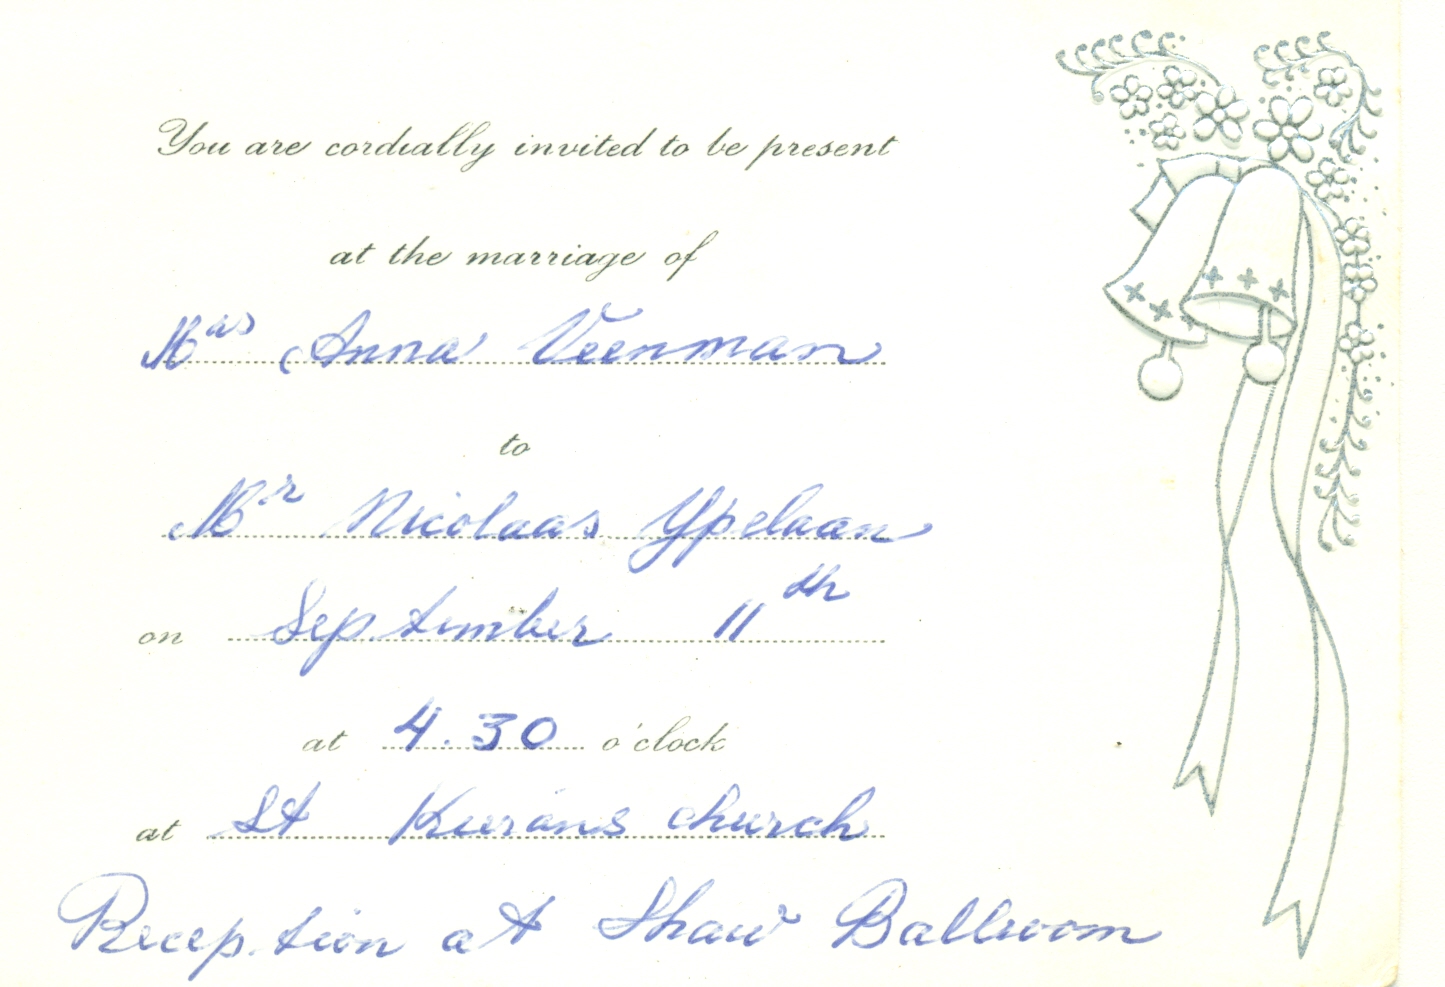 You are cordially invited to be present
at the marriage of
Mas Anna Veenman
to
Mr Nicolaas Ypelaan
on September 11th
at 4.30 o'clock
at St Kierans church
Reception at Shaw Ballroom